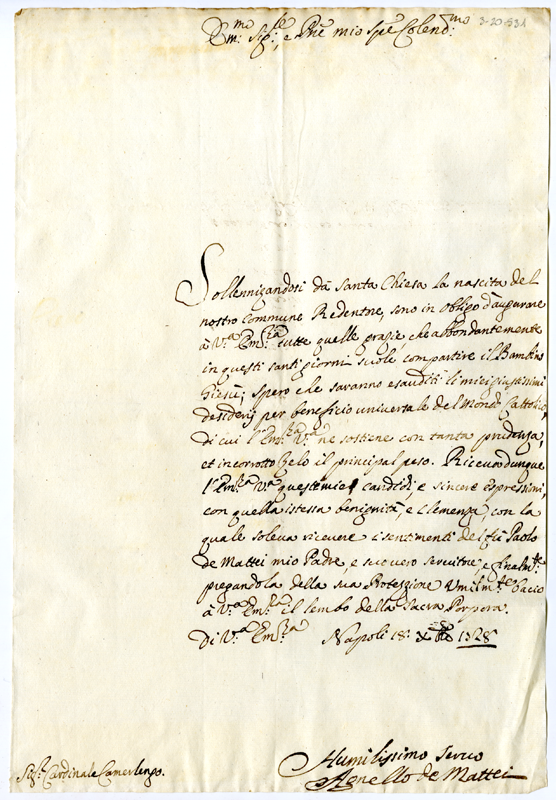 3-20-53A
Em:mo Sig:le, e Pñe mio Spe Colend:mo
Sollennizandosi dà Santa Chiesa la nascita del
nostro Commune Redentore, sono in obligo d'augurare
à V.ra Em:za tutte quelle grazie che abbondantemente
in questi santi giorni suole compartire il Bambino
Giesù; spero che saranno esauditi li miei giustissimi
desiderij per beneficio universale del Mondo Cattolico,
di cui l'Em:za V.ra ne sostiene con tanta prudenza,
et incorrotto Zelo il principal peso. Riceva dunque
l'Em:za V.ra queste mie candide, e sincere espressioni,
con quella istessa benignità, e clemenza, con la
quale soleva ricevere i sentimenti del fù Paolo
de Mattei mio Padre, e suo vero servitore, e finalm:te
pregandola della sua Protezzione Umilm:te bacio
à V.ra Em:za il lembo della Sacra Porpora.
Di V.ra Em:za Napoli 18: 1728
Humilissimo servo
Sig:r Cardinale Camerlengo.
Agnello de Mattei